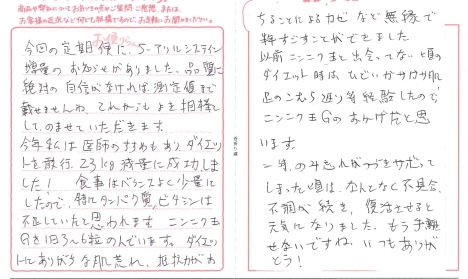 商品や弊社についてお気づきの点やご質問・ご感想、または
お客様の近況など何でも結構ですので、お気軽にお聞かせください。
今回の定期便に、S-アリルシステイン
増量のお知らせがありました。品質に
絶対の自信がなければ、測定値まで
載せませんね、これからもよき相棒と
して、のませていただきます。
今年私は医師のすすめもあり、ダイエッ
トを敢行、23kg減量に成功しまし
た! 食事はバランスよく少量に
したので、特にタンパク質、ビタミンは
不足していたと思われます。ニンニク玉
Gを1日3~6粒のんでいます。ダイエッ
トにありがちな肌荒れ、抵抗力がお
ちることによるカゼなど無縁で
過ごすことができました
以前ニンニク玉と出会ってない頃の
ダイエット時は、ひどいカサカサ肌
足のこむら返り等経験したので
ニンニク玉Gのおかげだと思
います。
一年、のみ忘ればっかで サボって
しまった頃は、なんとなく不具合、
不調が続き、復活させると
元気になりました。もう手離
せないですね。いつもありが
とう!